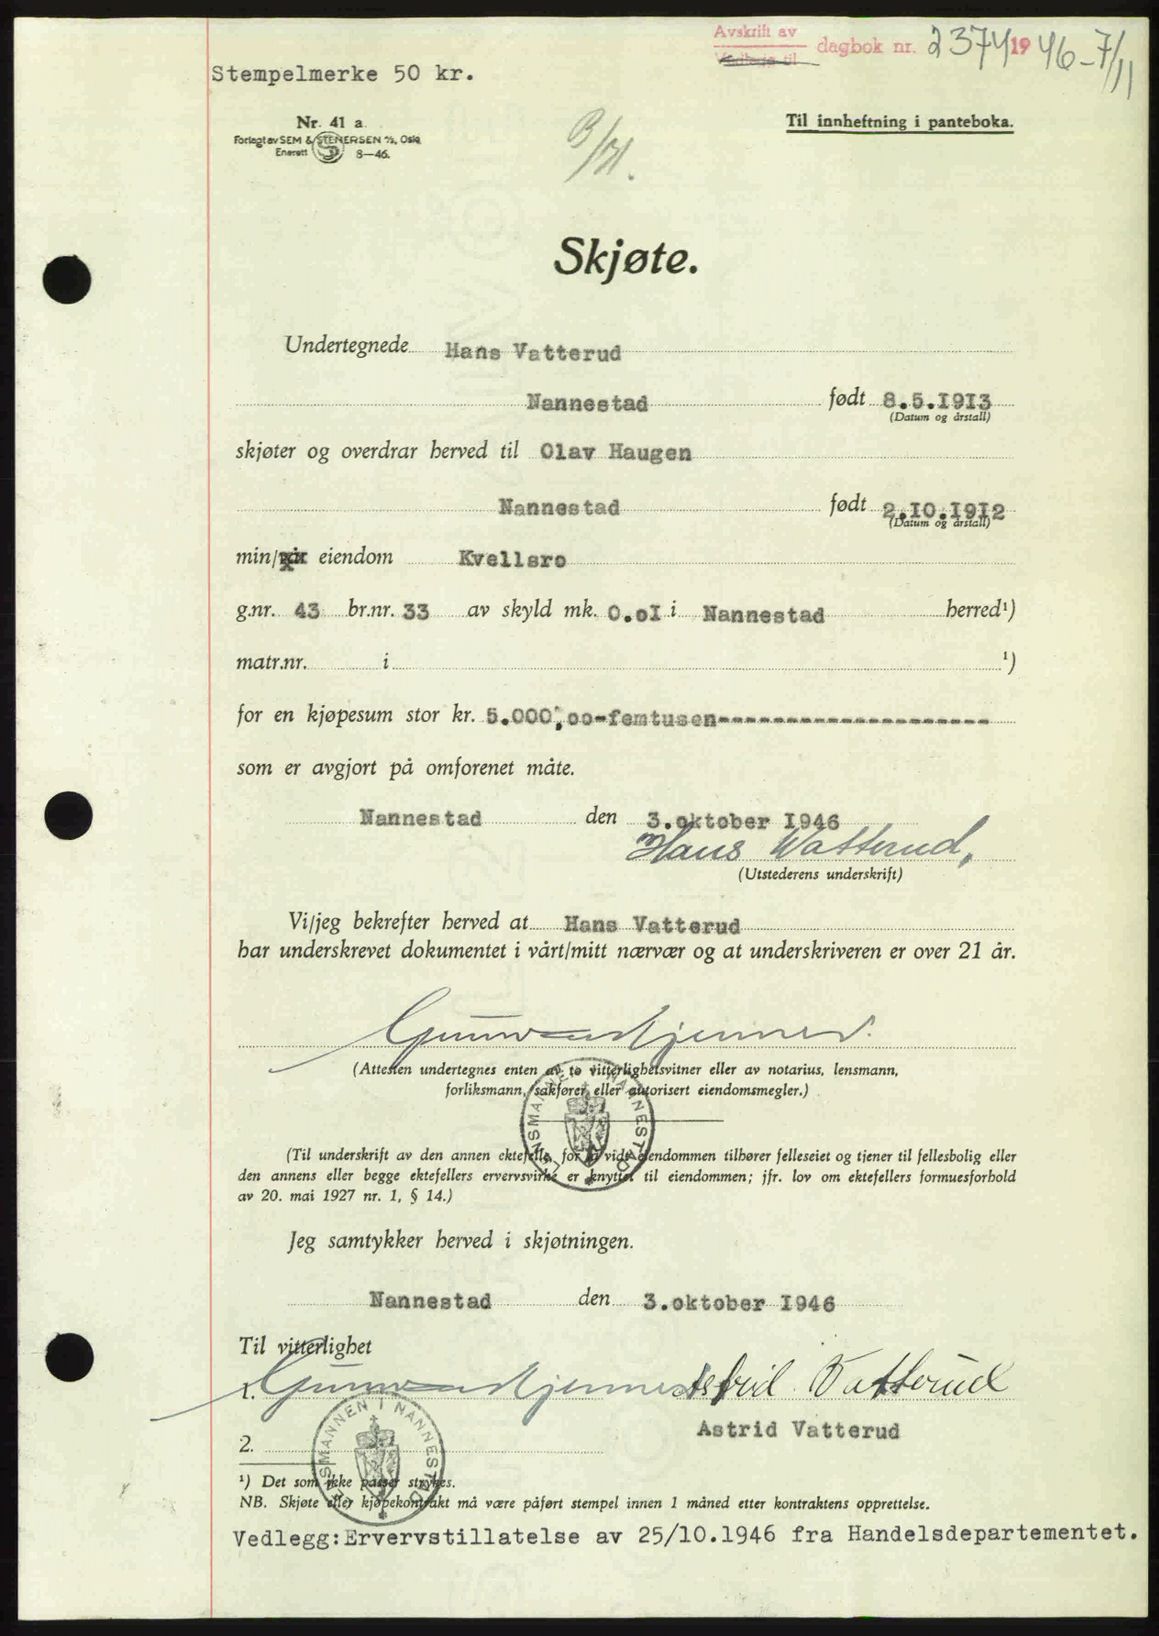 Avskrift av
Vedlegg til
dagbok nr. 2374 1946 - 7/11
Stempelmerke 50 kr.
Nr. 41 a
Forlagt av SEM & STENERSEN A/S, Oslo
Enerett 8—46.
Til innheftning i panteboka.
Skjøte.
Undertegnede Hans Vatterud
Nannestad født 8.5.1913
(Datum og årstall)
skjøter og overdrar herved til Olav Haugen
Nannestad født 2.10.1912
(Datum og årstall)
min/ eiendom Kvellsro
g.nr. 43 br.nr. 33 av skyld mk. 0.o1 i Nannestad herred¹)
matr.nr. i ¹)
for en kjøpesum stor kr. 5.000,oo-femtusen---------------------
som er avgjort på omforenet måte.
Nannestad den 3.oktober 1946
Hans Vatterud,
(Utstederens underskrift)
Vi/jeg bekrefter herved at Hans Vatterud
har underskrevet dokumentet i vårt/mitt nærvær og at underskriveren er over 21 år.
(Attesten undertegnes enten av to vitterlighetsvitner eller av notarius, lensmann,
forliksmann, sakfører eller autorisert eiendomsmegler.)
LENSMANNEN I NANNESTAD
(Til underskrift av den annen ektefelle for så vidt eiendommen tilhører felleseiet og tjener til fellesbolig eller
den annens eller begge ektefellers ervervsvirke er knyttet til eiendommen; jfr. lov om ektefellers formuesforhold
av 20. mai 1927 nr. 1, § 14.)
Jeg samtykker herved i skjøtningen.
Nannestad den 3.oktober 1946
Til vitterlighet
1. Astrid Vatterud
Astrid Vatterud
2.
LENSMANNEN I NANNESTAD
¹) Det som ikke passer strykes.
NB. Skjøte eller kjøpekontrakt må være påført stempel innen 1 måned etter kontraktens opprettelse.
Vedlegg:Ervervstillatelse av 25/10.1946 fra Handelsdepartementet.